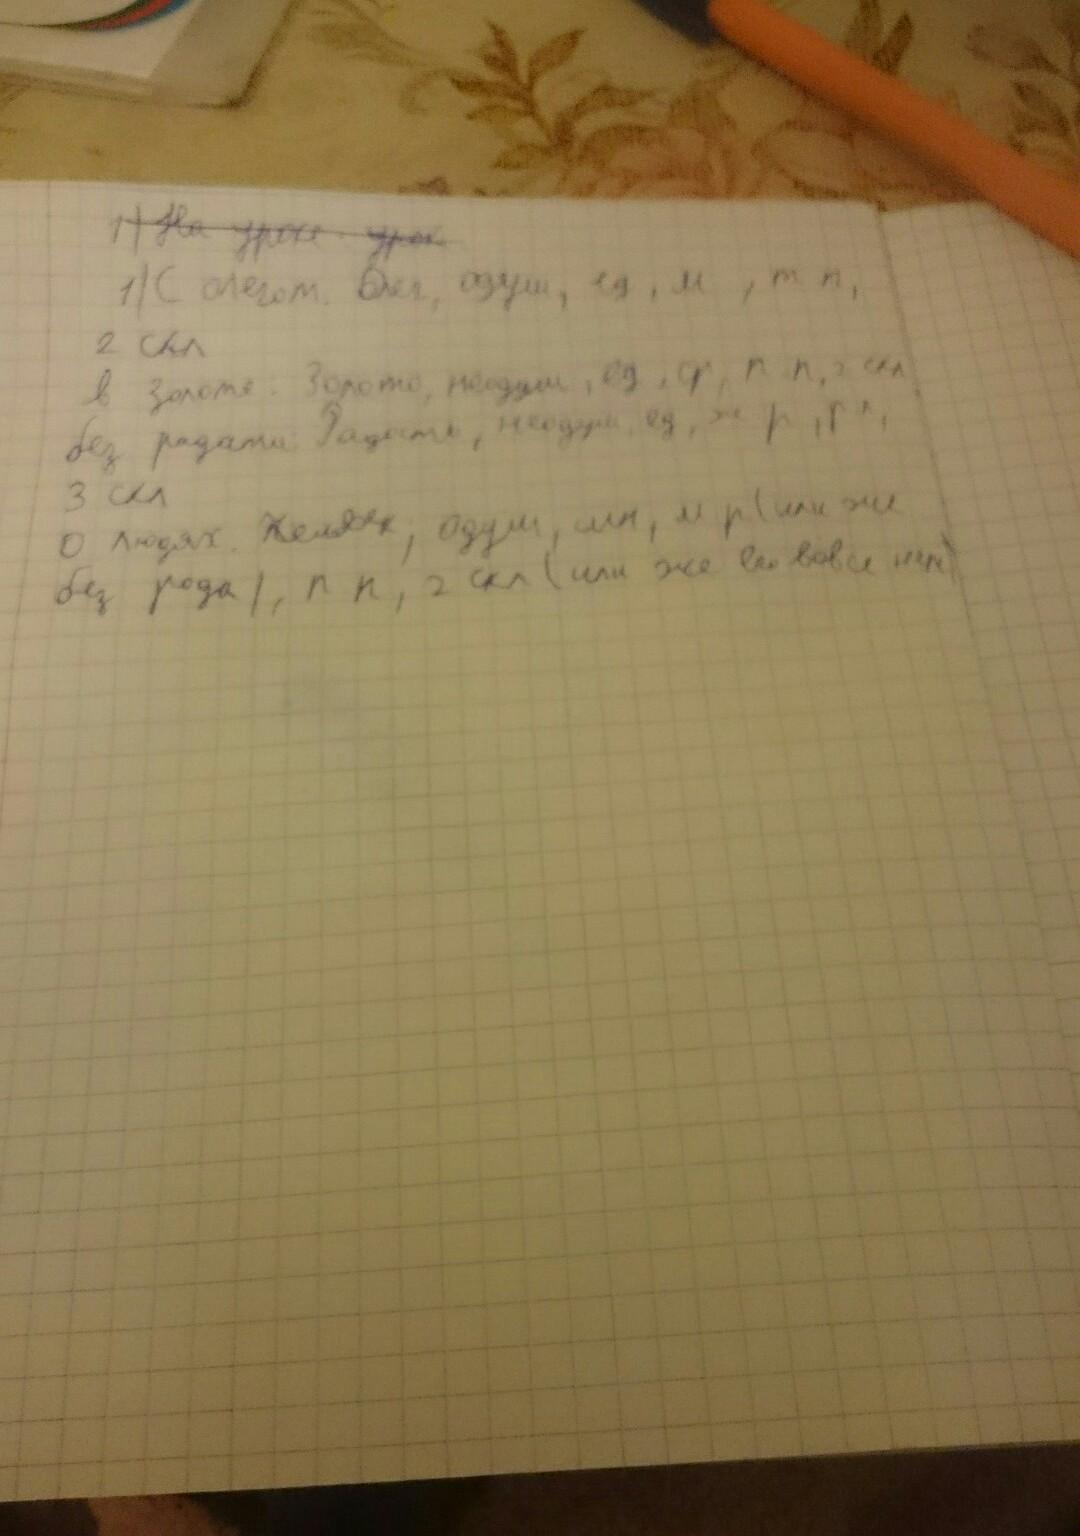 1) На уроке. урок
1) С олегом. Олег, одуш, ед, м , т п,
2 скл
в золоте. Золото, неодуш, ед, ср, п п, 2 скл
без радости. Радость, неодуш, ед, ж р, р п,
3 скл
о людях. Человек, одуш, мн, м р (или же
без рода), п п, 2 скл (или же его вовсе нет)